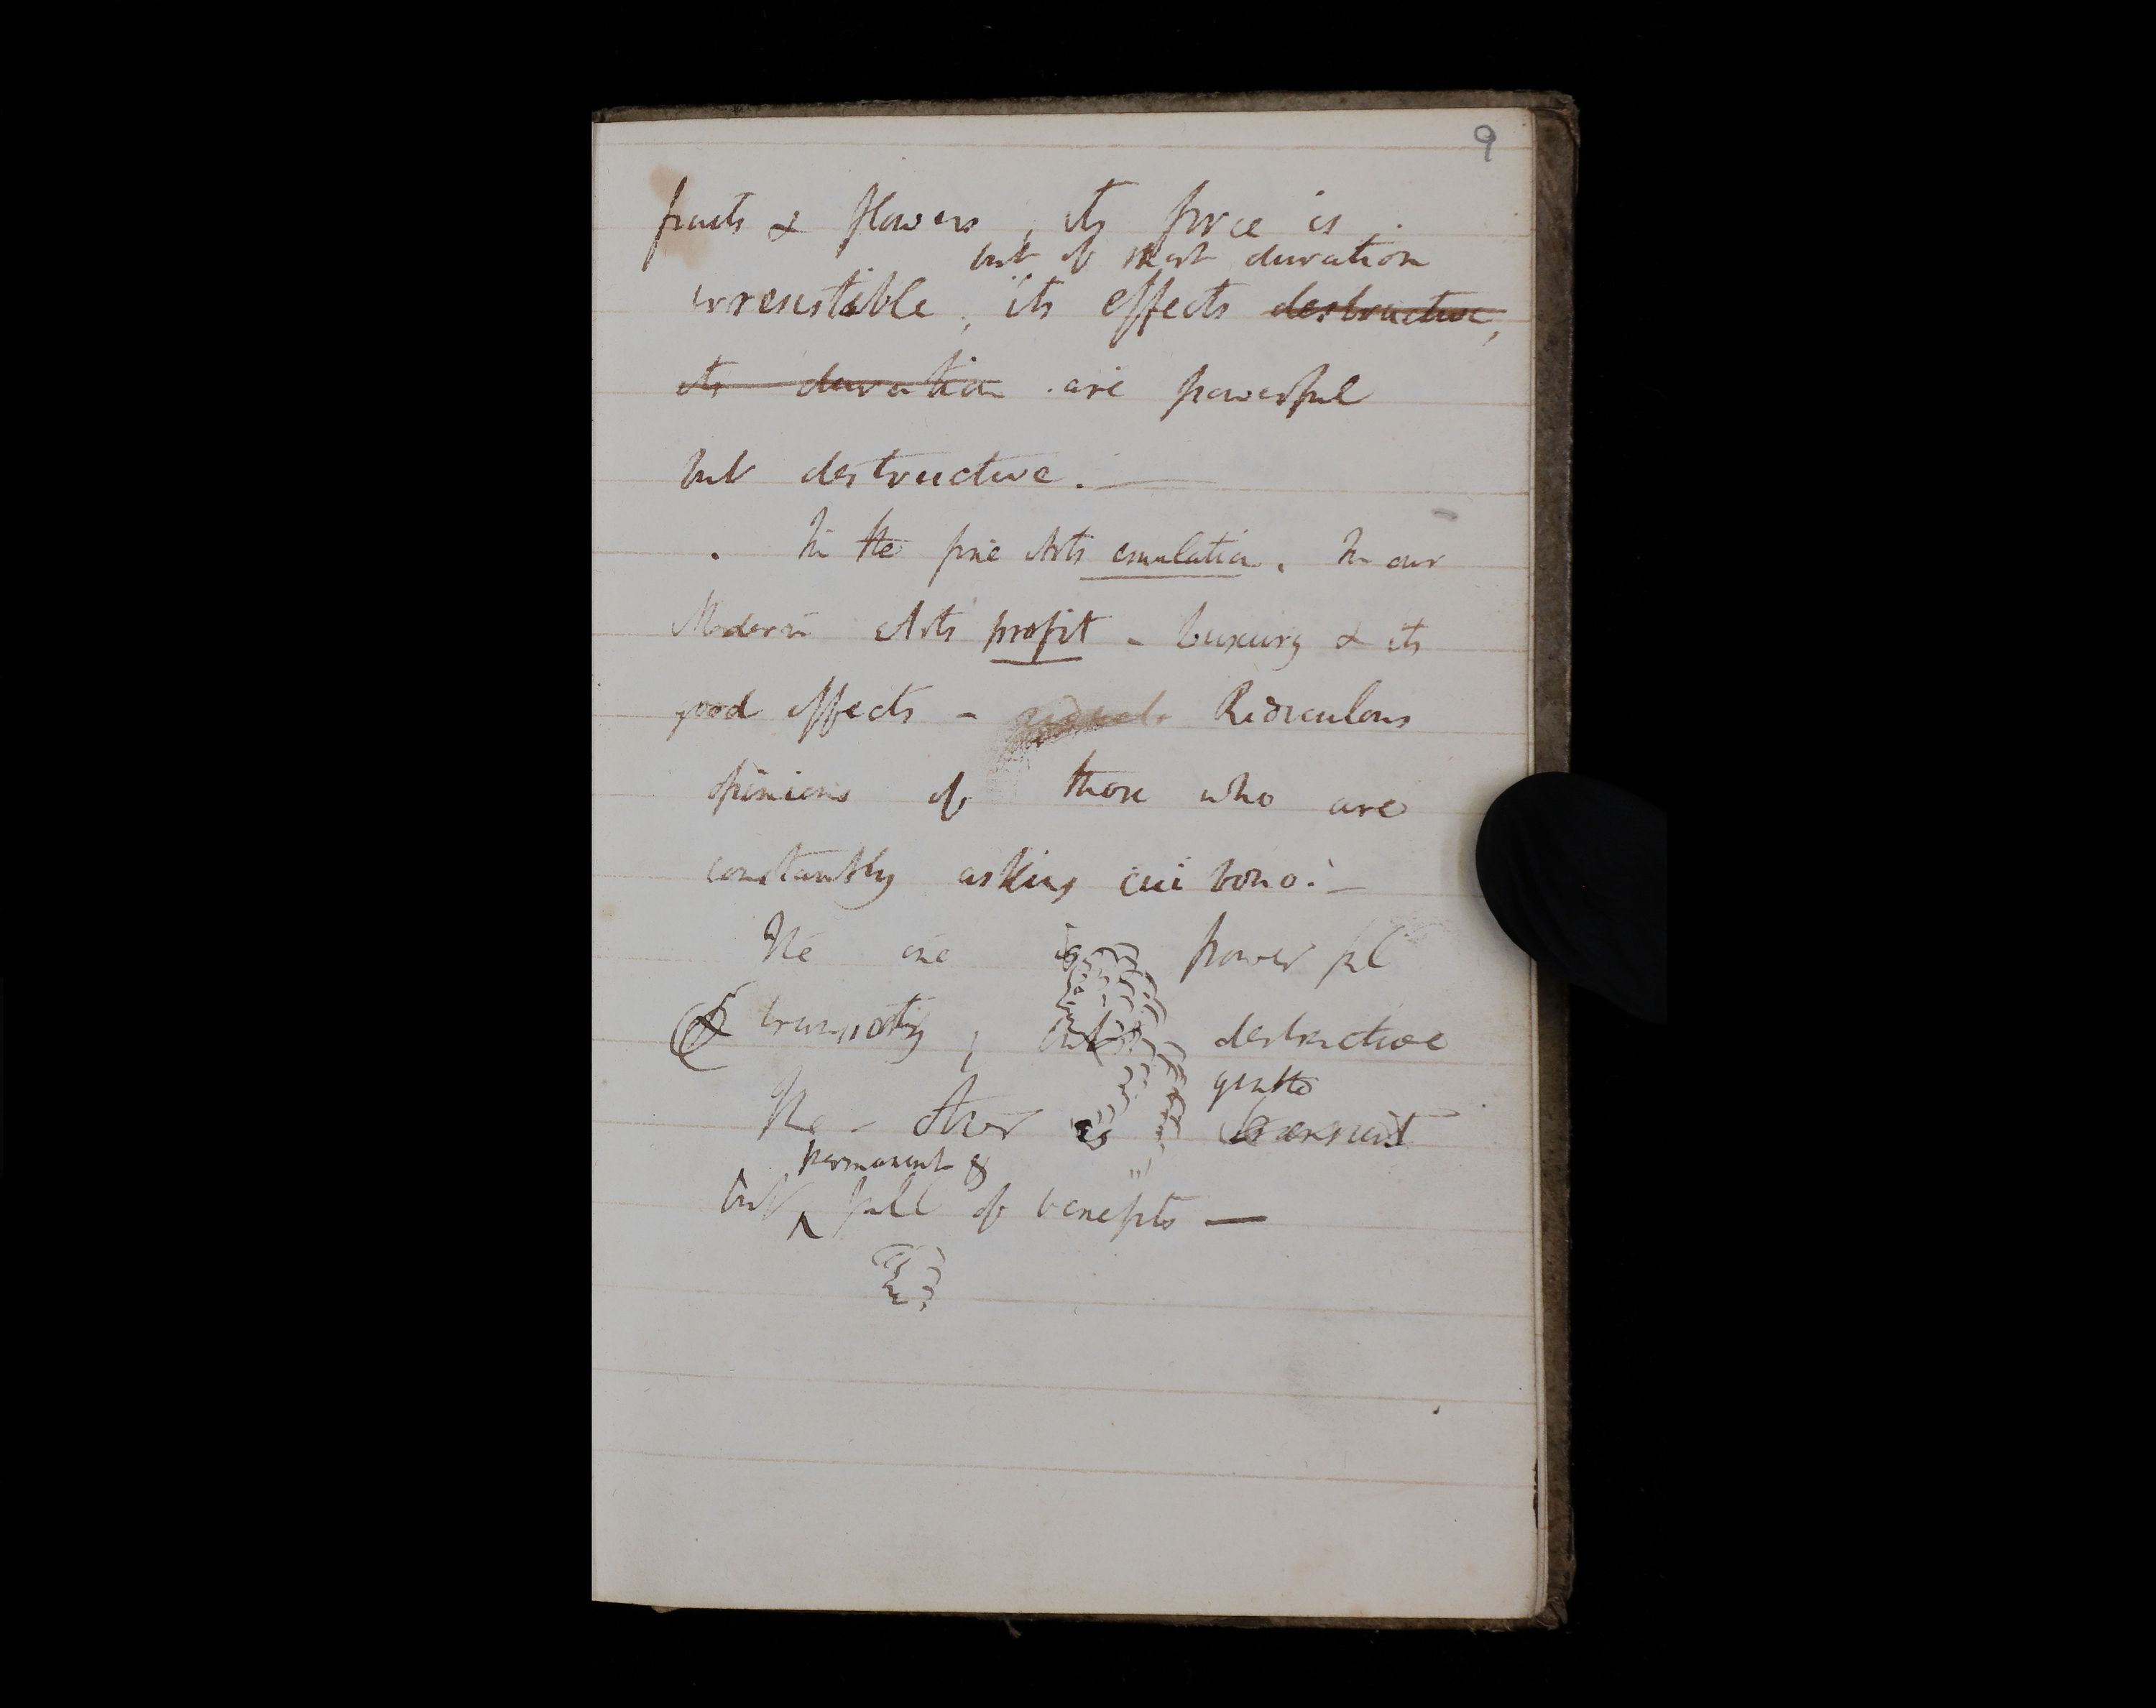 9
fruits & flowers, its force is
but of short duration
irresistible, its effects destructive,
its duration are powerful
but destructive. —
In the fine Arts emulation. In our
Modern Arts profit - Luxury & its
good effects - Ridiculous
opinions of those who are
constantly asking cui bono. —
The one is powerful
& transitory, but destructive
gentle
The - other is
permanent &
but ^ full of benefits —